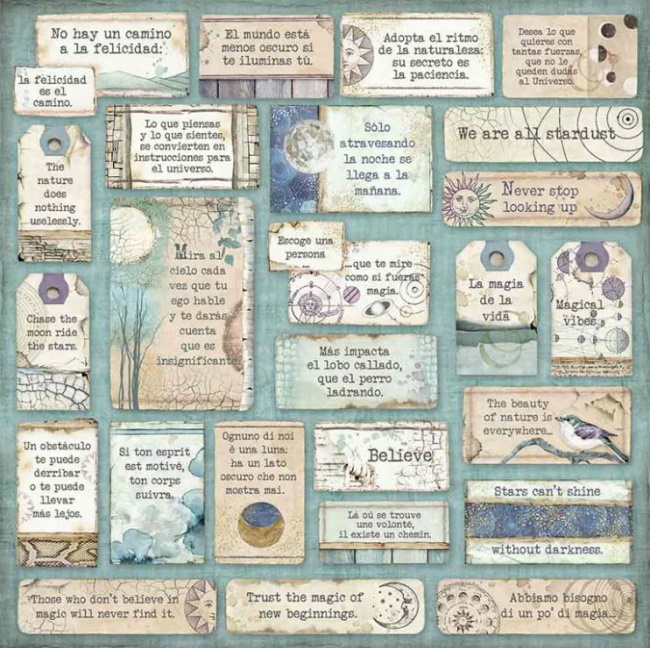 No hay un camino
a la felicidad:
la felicidad
es el
camino.
El mundo está
menos oscuro si
te iluminas tú.
Adopta el ritmo
de la naturaleza:
su secreto es
la paciencia.
Desea lo que
quieres con
tantas fuerzas,
que no le
queden dudas
al Universo.
The
nature
does
nothing
uselessly.
Lo que piensas
y lo que sientes,
se convierten en
instrucciones para
el universo.
Sólo
atravesando
la noche se
llega a la
mañana.
We are all stardust
Never stop
looking up
Mira al
cielo cada
vez que tu
ego hable
y te darás
cuenta
que es
insignificante.
Escoge una
persona
...que te mire
como si fueras
magia.
La magia
de la
vida
Magical
vibes
Chase the
moon ride
the stars.
Más impacta
el lobo callado,
que el perro
ladrando.
The beauty
of nature is
everywhere...
Un obstáculo
te puede
derribar
o te puede
llevar
más lejos.
Si ton esprit
est motivé,
ton corps
suivra.
Ognuno di noi
è una luna:
ha un lato
oscuro che non
mostra mai.
Believe
Là où se trouve
une volonté,
il existe un chemin.
Stars can't shine
without darkness.
Those who don't believe in
magic will never find it.
Trust the magic of
new beginnings.
Abbiamo bisogno
di un po' di magia...